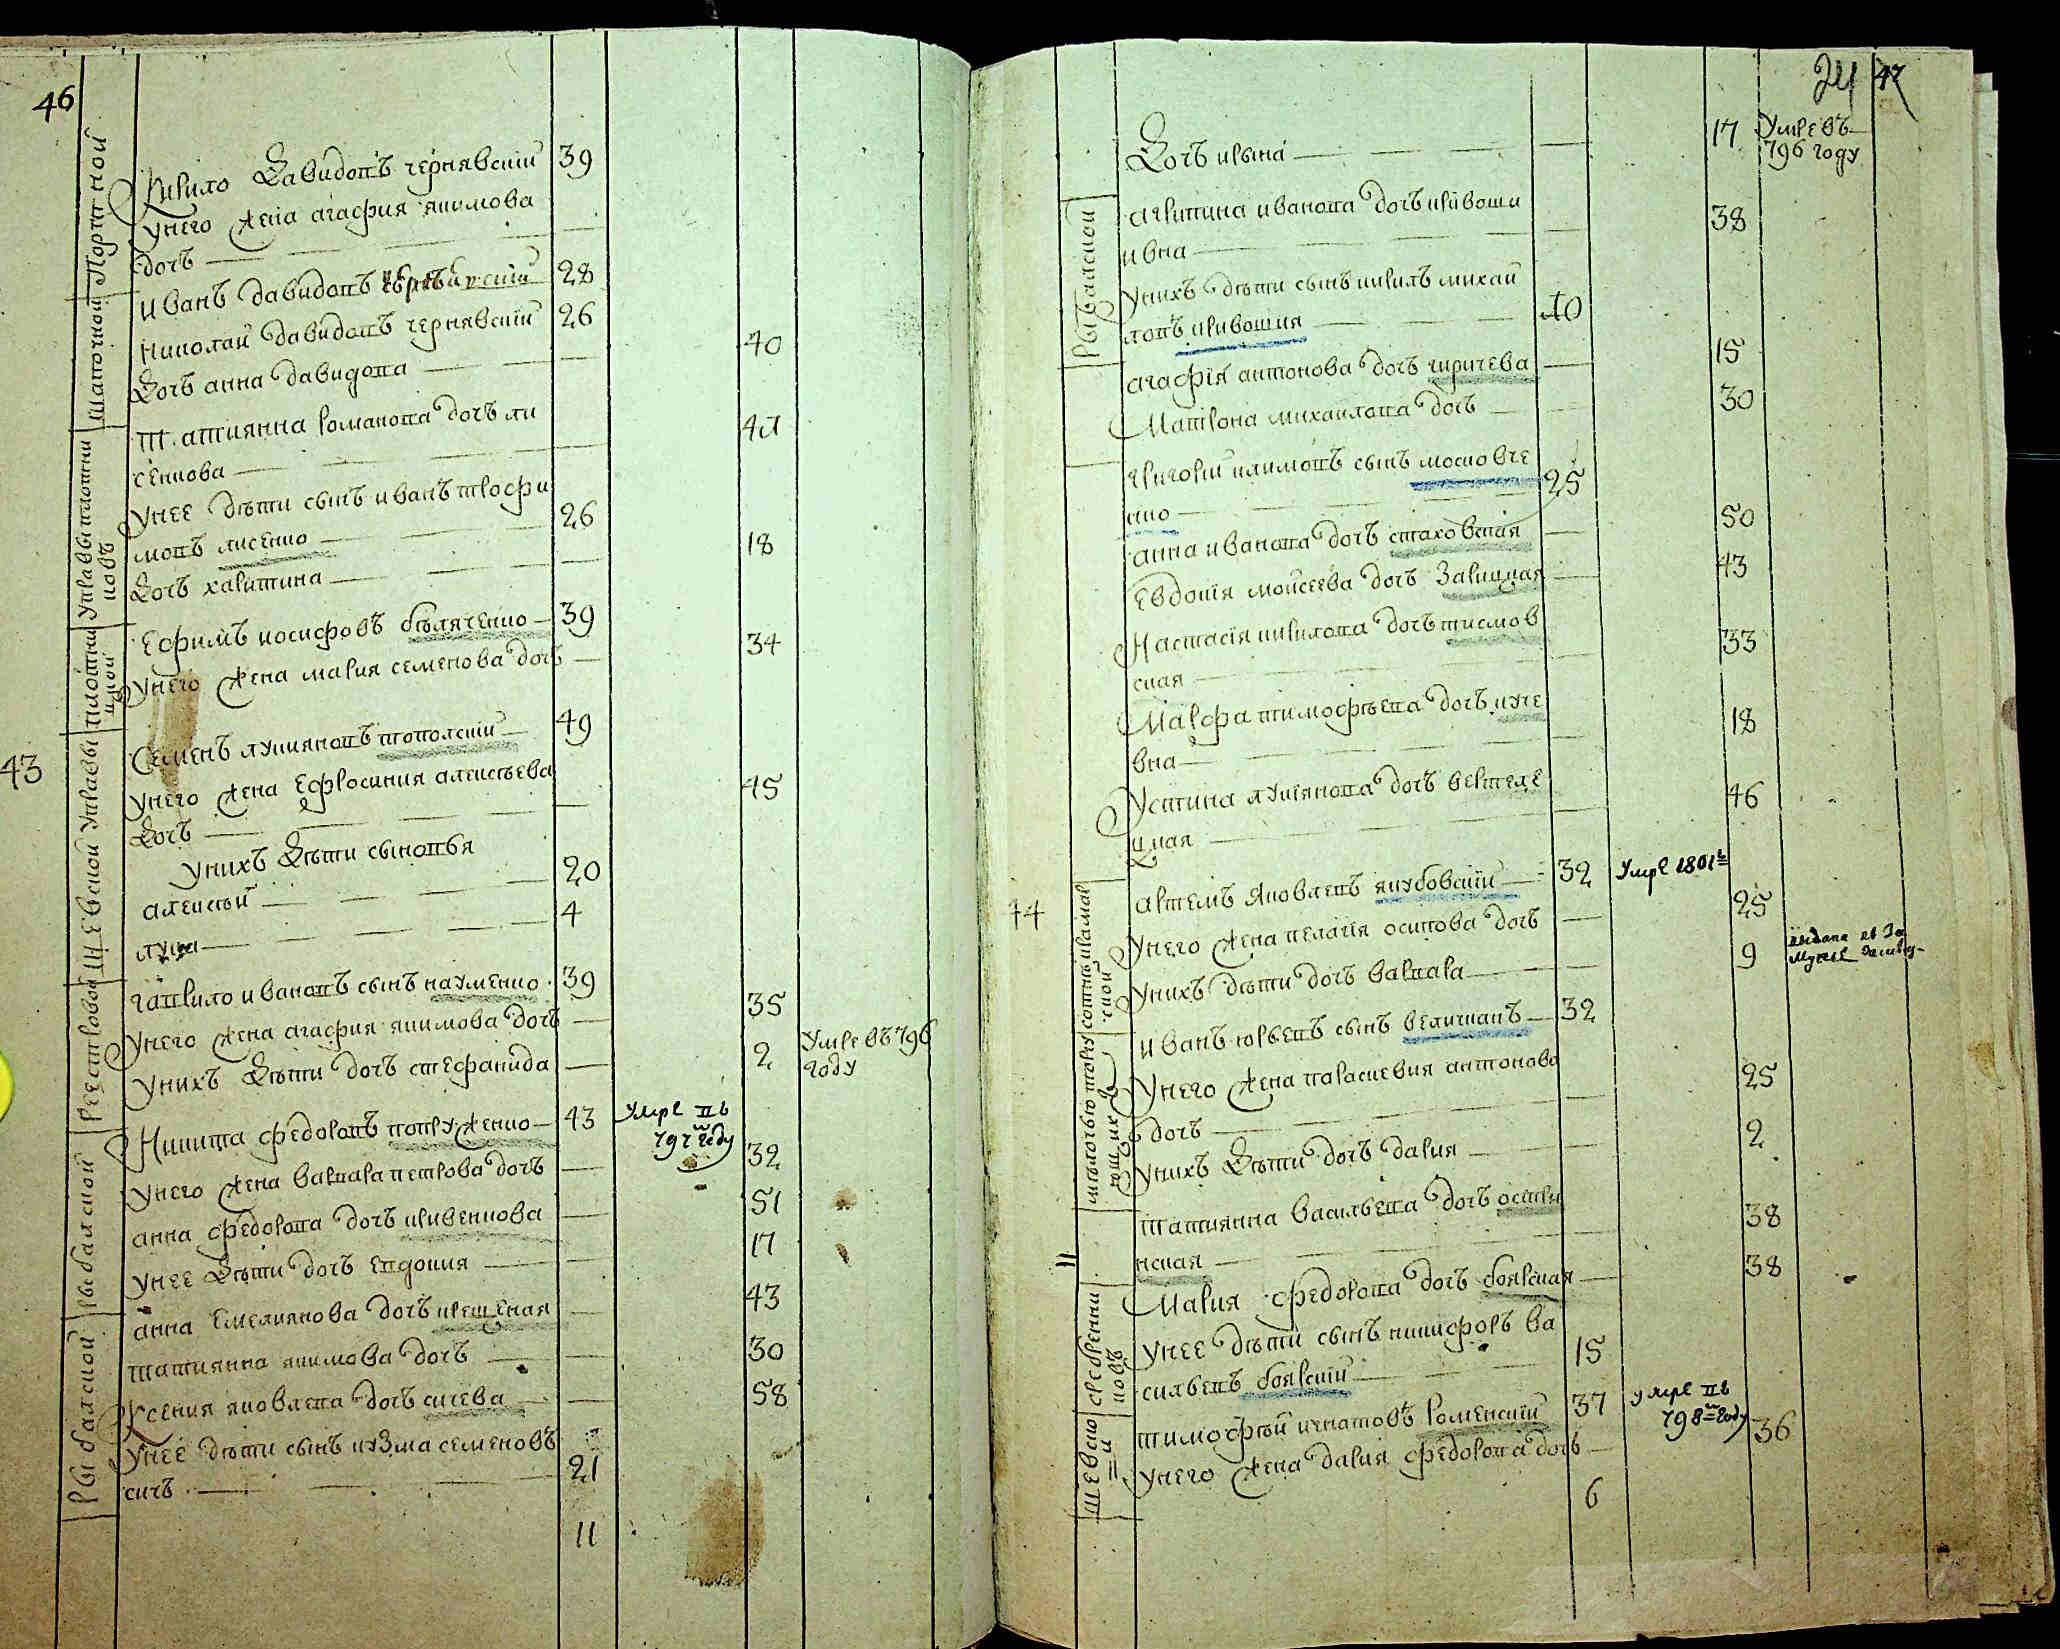 46
Портной
Кирило Давидовъ чернявский 39
Унего жена агафия якимова
дочъ
Шапочной
иванъ давидовъ чернявский 28
николай давидовъ чернявский 26
Дочъ анна давидова 40
Управы плотни
ковъ
татиянна романова дочъ ли
сенкова
унее дѣти сынъ иванъ трофи
мовъ лисенко 26
Дочъ харитина 18
плотни
цкой
Ефимъ иосифовъ бѣляченко 39
унего жена мария семенова дочъ 34
43
Шевской управы
Семенъ лукияновъ топольский 49
унего жена Ефросиния алексѣева 45
Дочъ
Унихъ Дѣти сыновья
алексѣй 20
лука 4
Реестровой
гаврило ивановъ сынъ науменко 39
унего жена агафия якимова дочъ 35
Унихъ Дѣти дочъ стефанида 2
Умре въ 796
году
Рыбалской
Никита федоровъ 43
умре въ
797 году
унего жена варвара петрова дочъ 32
анна федорова дочъ кривенкова 51
унее Дѣти дочъ евдокия 17
анна Емелиянова дочъ крещеная 43
Рыбалской
татиянна якимова дочъ 30
Ксения яковлева дочъ сичева 58
унее дѣти сынъ кузма семеновъ
сичъ 21
11
24 47
Дочъ ирина 17
Умре въ
796 году
Рыбалской
агрипина иванова дочъ кривоши 38
ивна
Унихъ дѣти сынъ кирилъ михай
ловъ кривошия 10
агафия антонова дочъ киричева 15
Матрона михаилова дочъ 30
григорий климовъ сынъ московче 25
нко
анна иванова дочъ стаховская 50
Евдокия моисеева дочъ Зарицкая 43
Настасия кирилова дочъ писмов 33
ская
Марфа тимофѣева дочъ куче 18
вна
Устина лукиянова дочъ вертеле 46
цкая
44
артемъ Яковлевъ якубовский 32
умре 1801
унего жена пелагия осипова дочъ 25
Унихъ дѣти дочъ варвара 9
иванъ юрьевъ сынъ великианъ 32
Унего жена параскевия антонова 25
дочъ
Унихъ Дѣти дочъ дария 2
татиянна василева дочъ остря 38
нская
Мария федорова дочъ боярская 38
серебрени
ковъ
унее дѣти сынъ никифоръ ва
силевъ боярский 15
Шевско
й
тимофѣй игнатовъ Роменский 37
умре въ
798 году
унего жена дария федорова дочъ 36
6